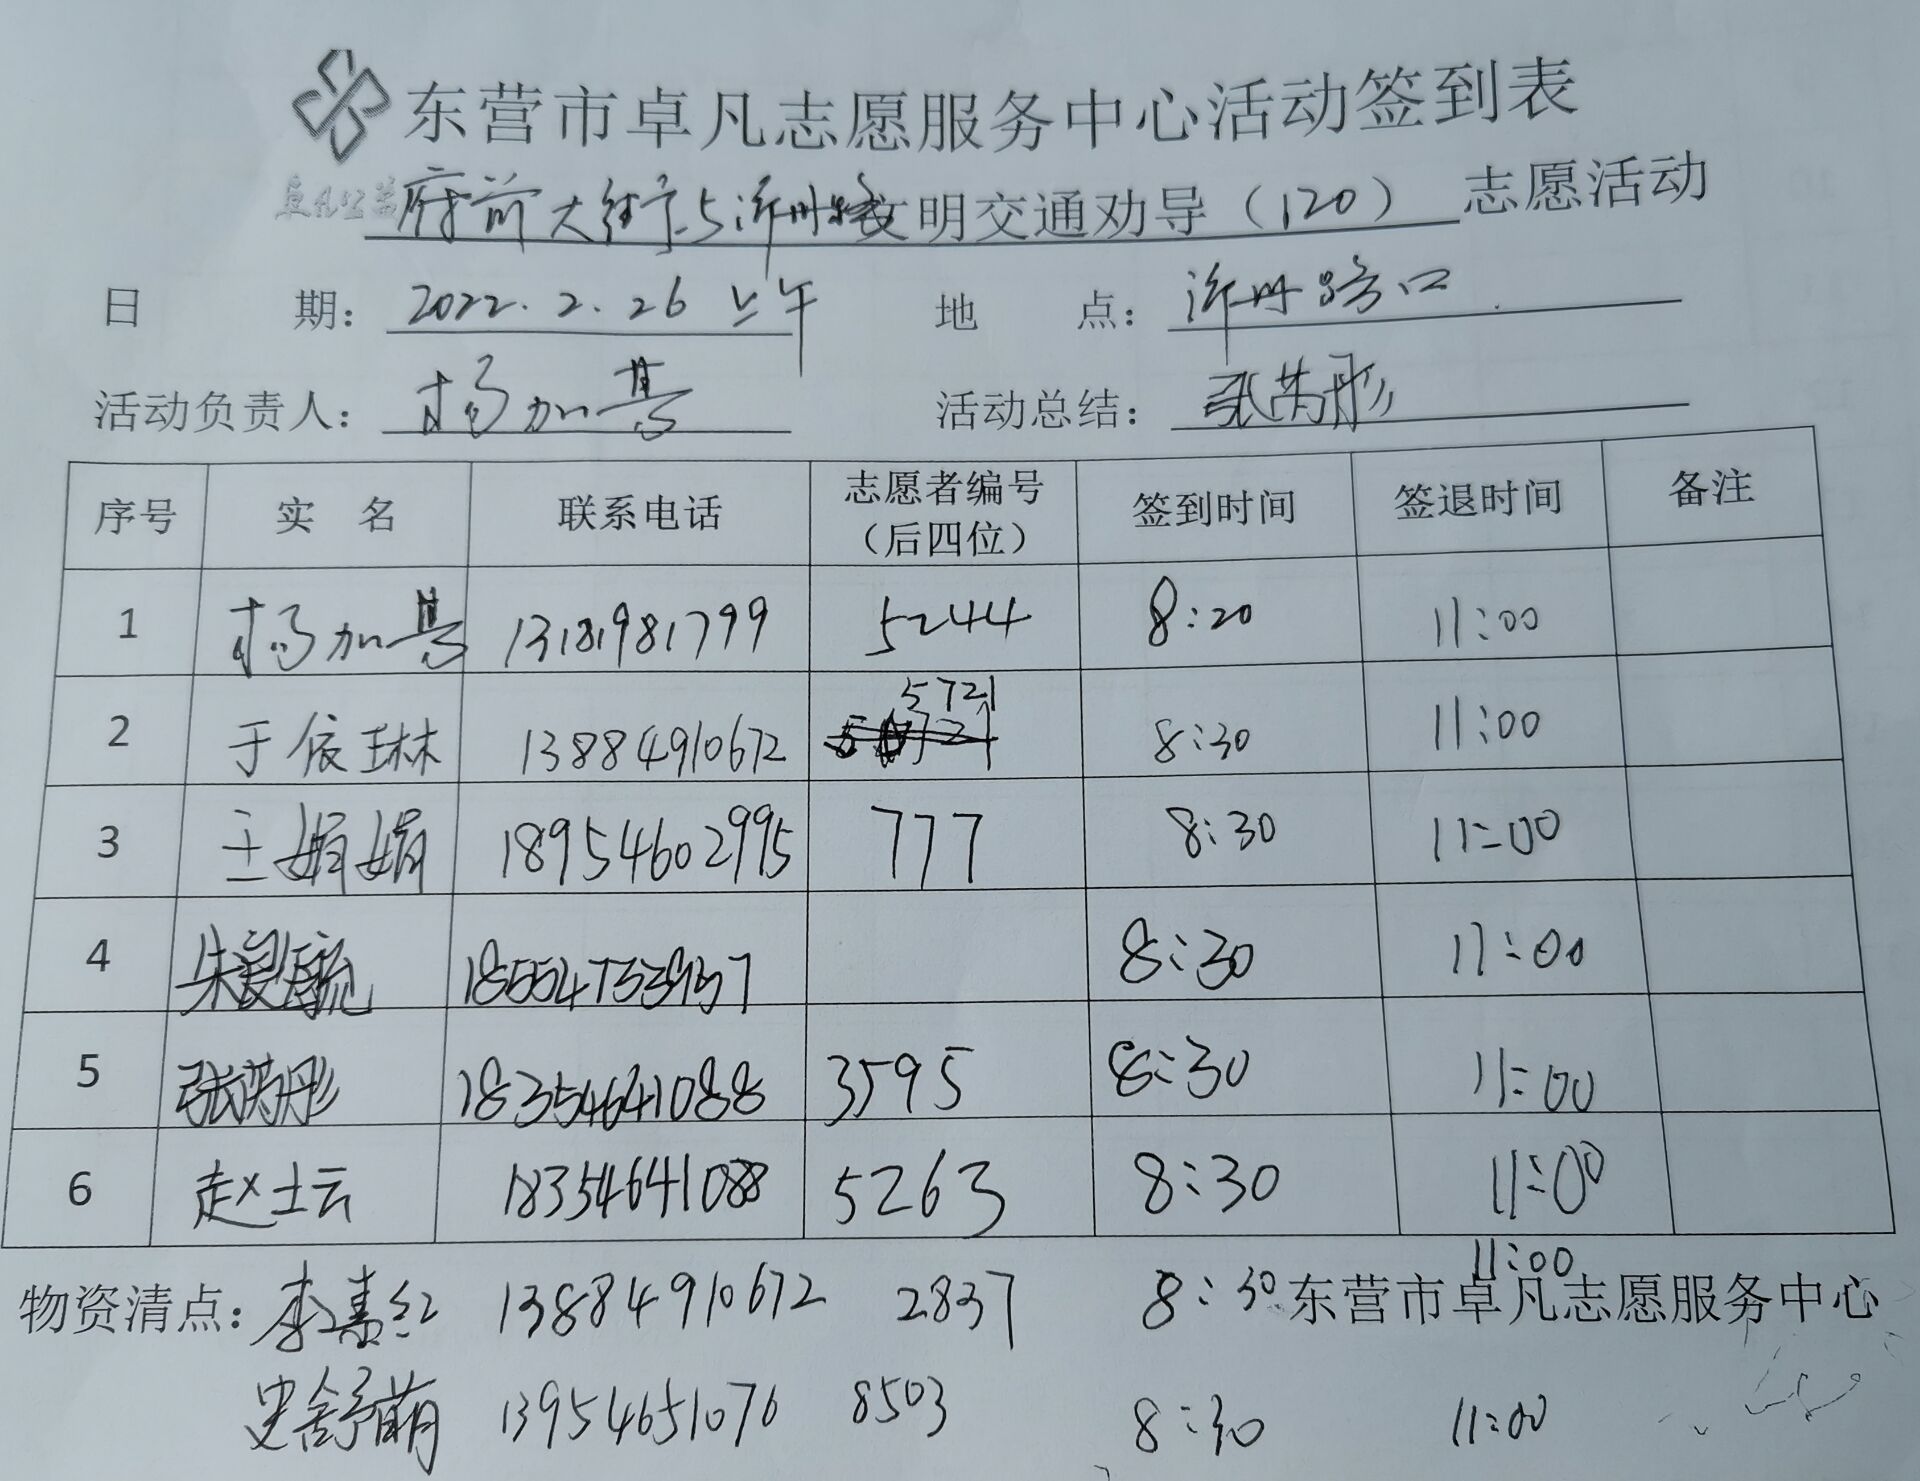 东营市卓凡志愿服务中心活动签到表
卓凡公益
府前大街与沂州路文明交通劝导（120） 志愿活动
日 期： 2022.2.26 上午 地 点： 沂州路口
活动负责人： 杨加 活动总结： 张芮彤
序号 实 名 联系电话 志愿者编号（后四位） 签到时间 签退时间 备注
1 杨加 13181981799 5244 8:20 11:00
2 于依琳 13884910672 5721 8:30 11:00
3 王娟娟 18954602995 777 8:30 11:00
4 朱 8:30 11:00
5 张芮彤 18354641088 3595 8:30 11:00
6 赵士云 18354641088 5263 8:30 11:00
11:00
物资清点： 李嘉红 13884910672 2837 8:30 东营市卓凡志愿服务中心
史舒萌 13954651076 8503 8:30 11:00